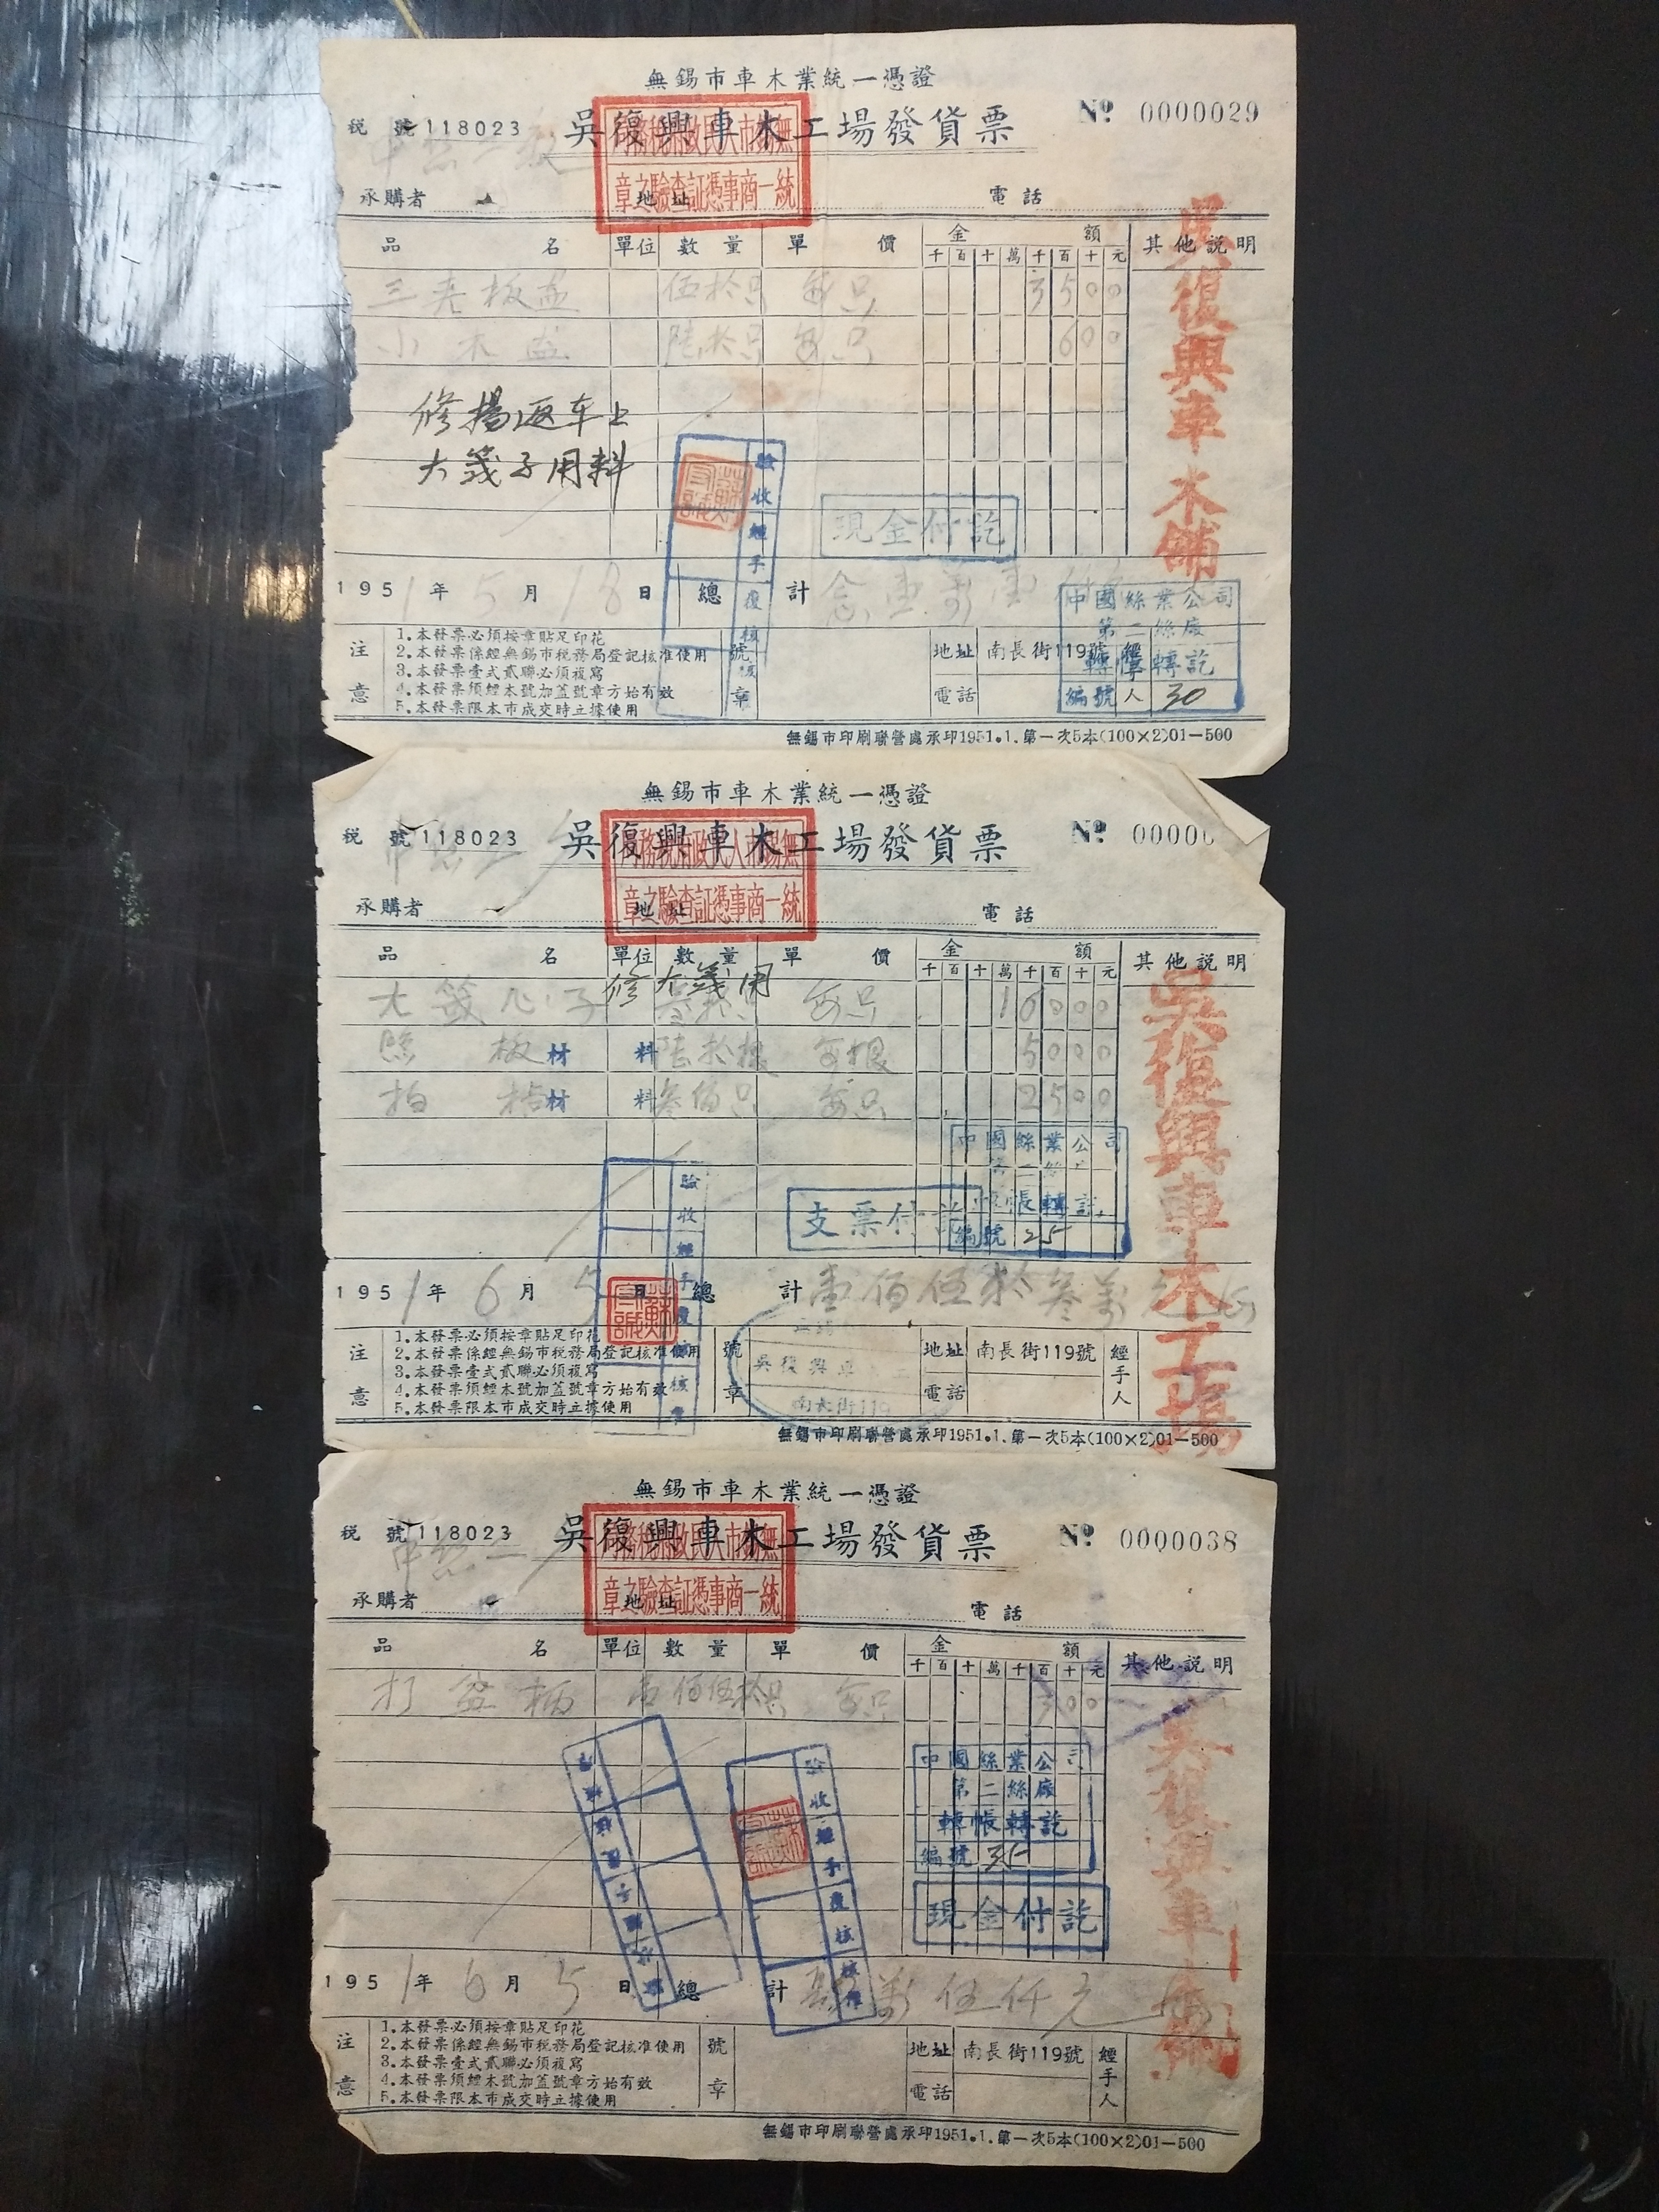 無錫市車木業統一憑證
稅 號 118023 吳復興車木工場發貨票 № 0000029
無錫市人民政府稅務局
統一商事憑証查驗之章
承購者 地址 電話
品 名 單位 數 量 單 價 金 額 其他說明
千 百 十 萬 千 百 十 元
三夾板盆 伍拾只 每只 3500
小木盆 陸拾只 每只 600
修揚返车上
大籤子用料
吳復興車木舖
驗收 經手 復核
現金付訖
1951年5月18日 總 計
中國絲業公司
第二絲廠
轉帳轉訖
編號 30
注意
1.本發票必須按章貼足印花
2.本發票係經無錫市稅務局登記核准使用
3.本發票壹式貳聯必須複寫
4.本發票須經本號加蓋號章方始有效
5.本發票限本市成交時立據使用
號章
地址 南長街119號
電話
經手人
無錫市印刷聯營處承印1951.1.第一次5本(100×2)01—500
無錫市車木業統一憑證
稅 號 118023 吳復興車木工場發貨票 № 00000
無錫市人民政府稅務局
統一商事憑証查驗之章
承購者 地址 電話
品 名 單位 數 量 單 價 金 額 其他說明
千 百 十 萬 千 百 十 元
修大籤用
大籤 子 每只 16000
板材料 陸拾根 每根 5000
材料 叁佰只 每只 2500
吳復興車木工場
中國絲業公司
帳轉訖
編號 25
支票付訖
驗收 經手 覆核
1951年6月5日 總 計 壹佰伍拾叁萬元
注意
1.本發票必須按章貼足印花
2.本發票係經無錫市稅務局登記核准使用
3.本發票壹式貳聯必須複寫
4.本發票須經本號加蓋號章方始有效
5.本發票限本市成交時立據使用
號章
吳復興車
南長街119
地址 南長街119號
電話
經手人
無錫市印刷聯營處承印1951.1.第一次5本(100×2)01—500
無錫市車木業統一憑證
稅 號 118023 吳復興車木工場發貨票 № 0000038
無錫市人民政府稅務局
統一商事憑証查驗之章
承購者 地址 電話
品 名 單位 數 量 單 價 金 額 其他說明
千 百 十 萬 千 百 十 元
打盆柄 壹佰伍拾只 每只 300
吳復興車木舖
中國絲業公司
第二絲廠
轉帳轉訖
編號 35
現金付訖
驗收 經手 覆核
1951年6月5日 總 計 萬伍仟元
注意
1.本發票必須按章貼足印花
2.本發票係經無錫市稅務局登記核准使用
3.本發票壹式貳聯必須複寫
4.本發票須經本號加蓋號章方始有效
5.本發票限本市成交時立據使用
號章
地址 南長街119號
電話
經手人
無錫市印刷聯營處承印1951.1.第一次5本(100×2)01—500